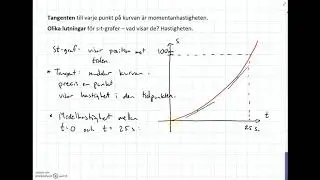 Tangenten till varje punkt på kurvan är momentanhastigheten.
Olika lutningar för s-t-grafer – vad visar de? Hastigheten.
St-graf: visar position mot
tiden.
• Tangent: nuddar kurvan
precis en punkt
visar hastighet i den tidpunkten.
• Medelhastighet mellan
t=0 och t=25 s.
s
100
25 s.
t